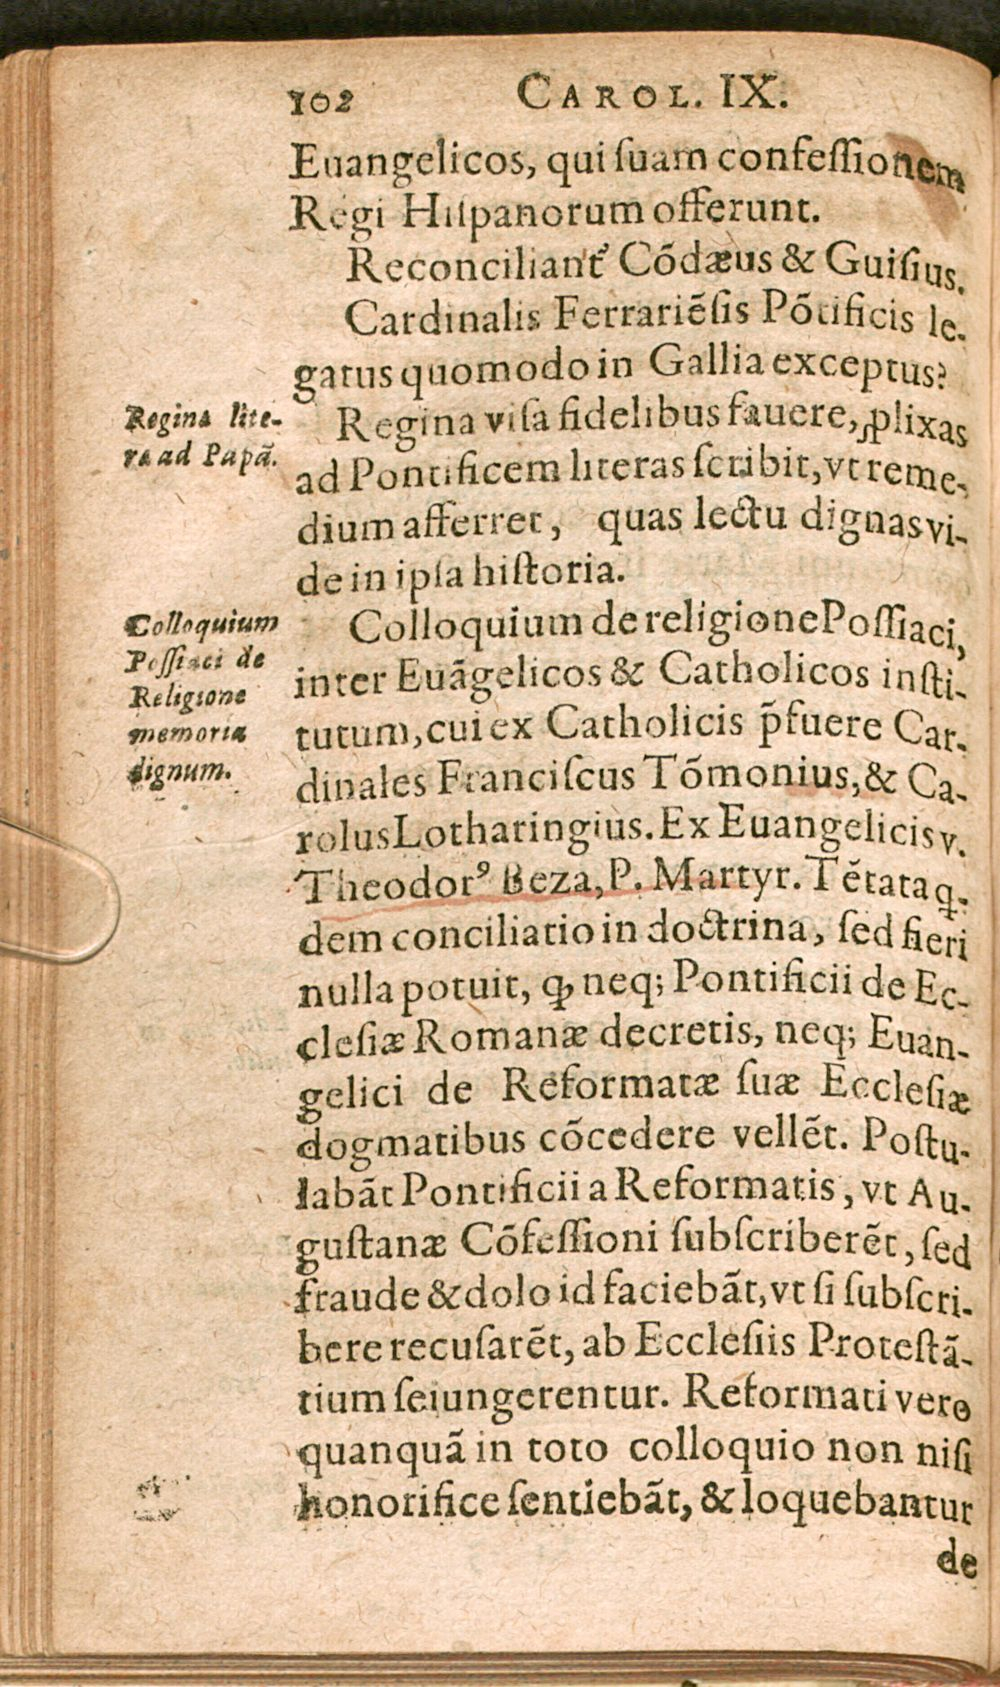 102 CAROL. IX.
Euangelicos, qui ſuam confeſſionem
Regi Hiſpanorum offerunt.
Reconciliant᷑ Cõdæus & Guiſius.
Cardinalis Ferrariẽſis Põtificis le-
gatus quomodo in Gallia exceptus?
Regina lite-
ræ ad Papã.
Regina viſa fidelibus fauere, ꝓlixas
ad Pontificem literas ſcribit, vt reme-
dium afferret, quas lectu dignas vi-
de in ipſa hiſtoria.
Colloquium
Poſſiaci de
Religione
memoria
dignum.
Colloquium de religione Poſſiaci,
inter Euãgelicos & Catholicos inſti-
tutum, cui ex Catholicis p̃fuere Car-
dinales Franciſcus Tõmonius, & Ca-
rolus Lotharingius. Ex Euangelicis v.
Theodorꝰ Beza, P. Martyr. Tẽtata q.
dem conciliatio in doctrina, ſed fieri
nulla potuit, ꝙ neq; Pontificii de Ec-
cleſiæ Romanæ decretis, neq; Euan-
gelici de Reformatæ ſuæ Eccleſiæ
dogmatibus cõcedere vellẽt. Poſtu-
labãt Pontificii a Reformatis, vt Au-
guſtanæ Cõfeſſioni ſubſcriberẽt, ſed
fraude & dolo id faciebãt, vt ſi ſubſcri-
bere recuſarẽt, ab Eccleſiis Proteſtã-
tium ſeiungerentur. Reformati vero
quanquã in toto colloquio non niſi
honorifice ſentiebãt, & loquebantur
de